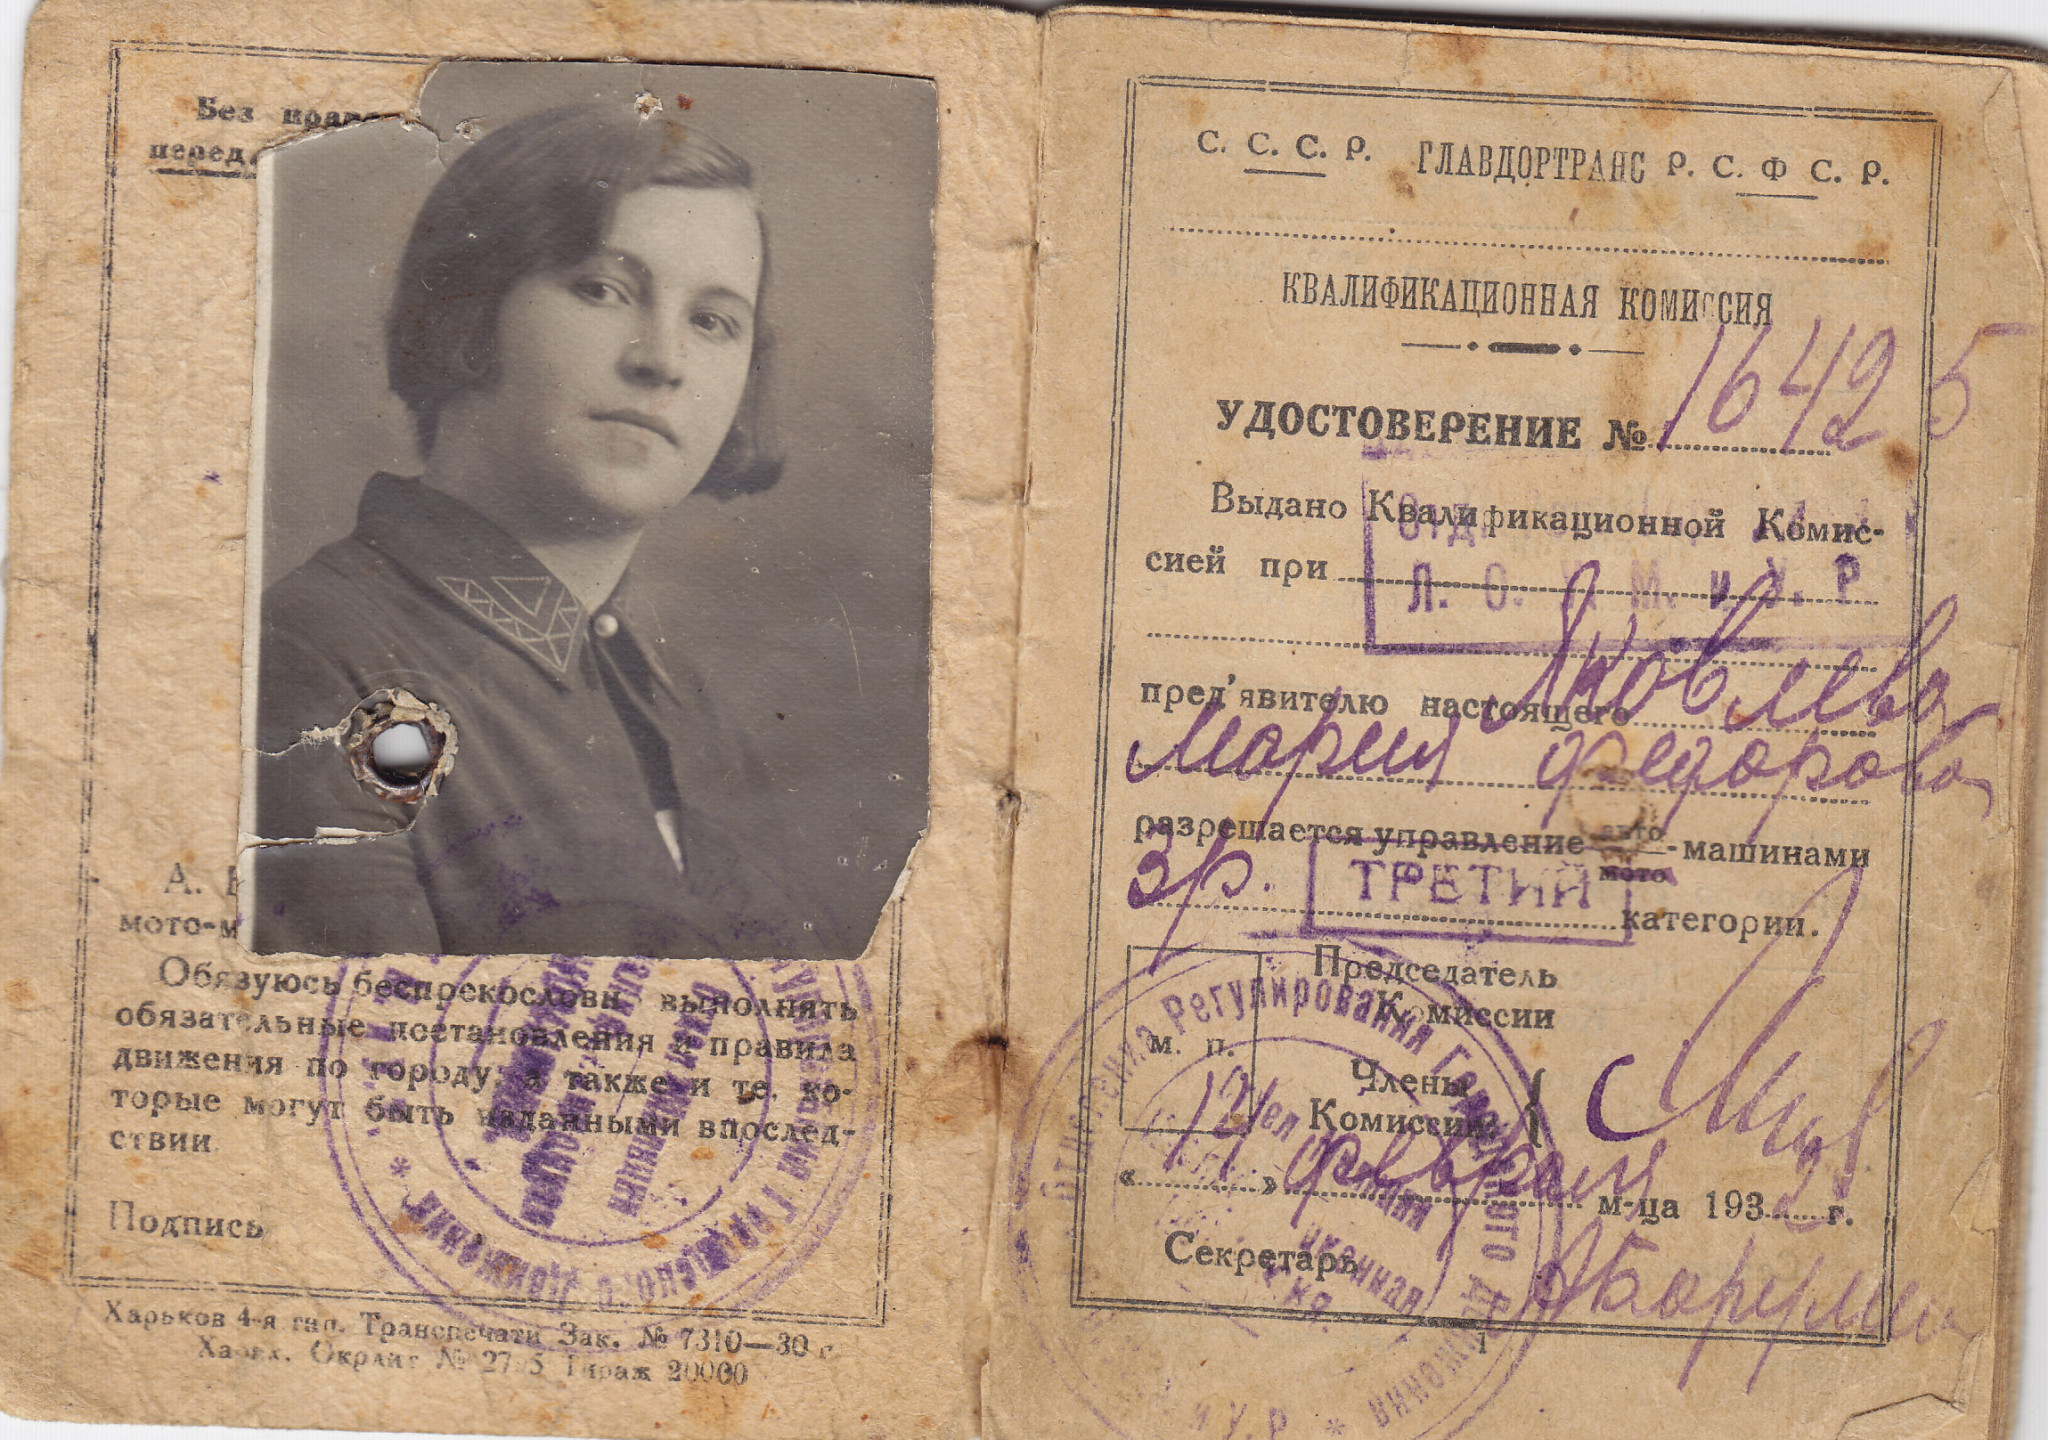 Без
перед
мото-м
Обязуюсь беспрекословн выполнять
обязательные постановления и правила
движения по городу, а также и те, ко-
торые могут быть изданными впослед-
ствии
Подпись
Харьков 4-я тип. Транспечати Зак. № 7310—30 г.
Окрлит № Тираж 20000
С. С. С. Р. ГЛАВДОРТРАНС Р. С. Ф. С. Р.
КВАЛИФИКАЦИОННАЯ КОМИССИЯ
УДОСТОВЕРЕНИЕ № 16425
Выдано Квалификационной Комис-
сией при
Л. О. М. и У. Р
пред'явителю настоящего Яковлева
Мария Федоровна
разрешается управление авто/мото-машинами
3 р. ТРЕТИЙ категории.
Председатель
Комиссии
м. п.
Члены
Комиссии
« 12 » февраля м-ца 1932 г.
Секретарь
Регулирования Городского Движения
1